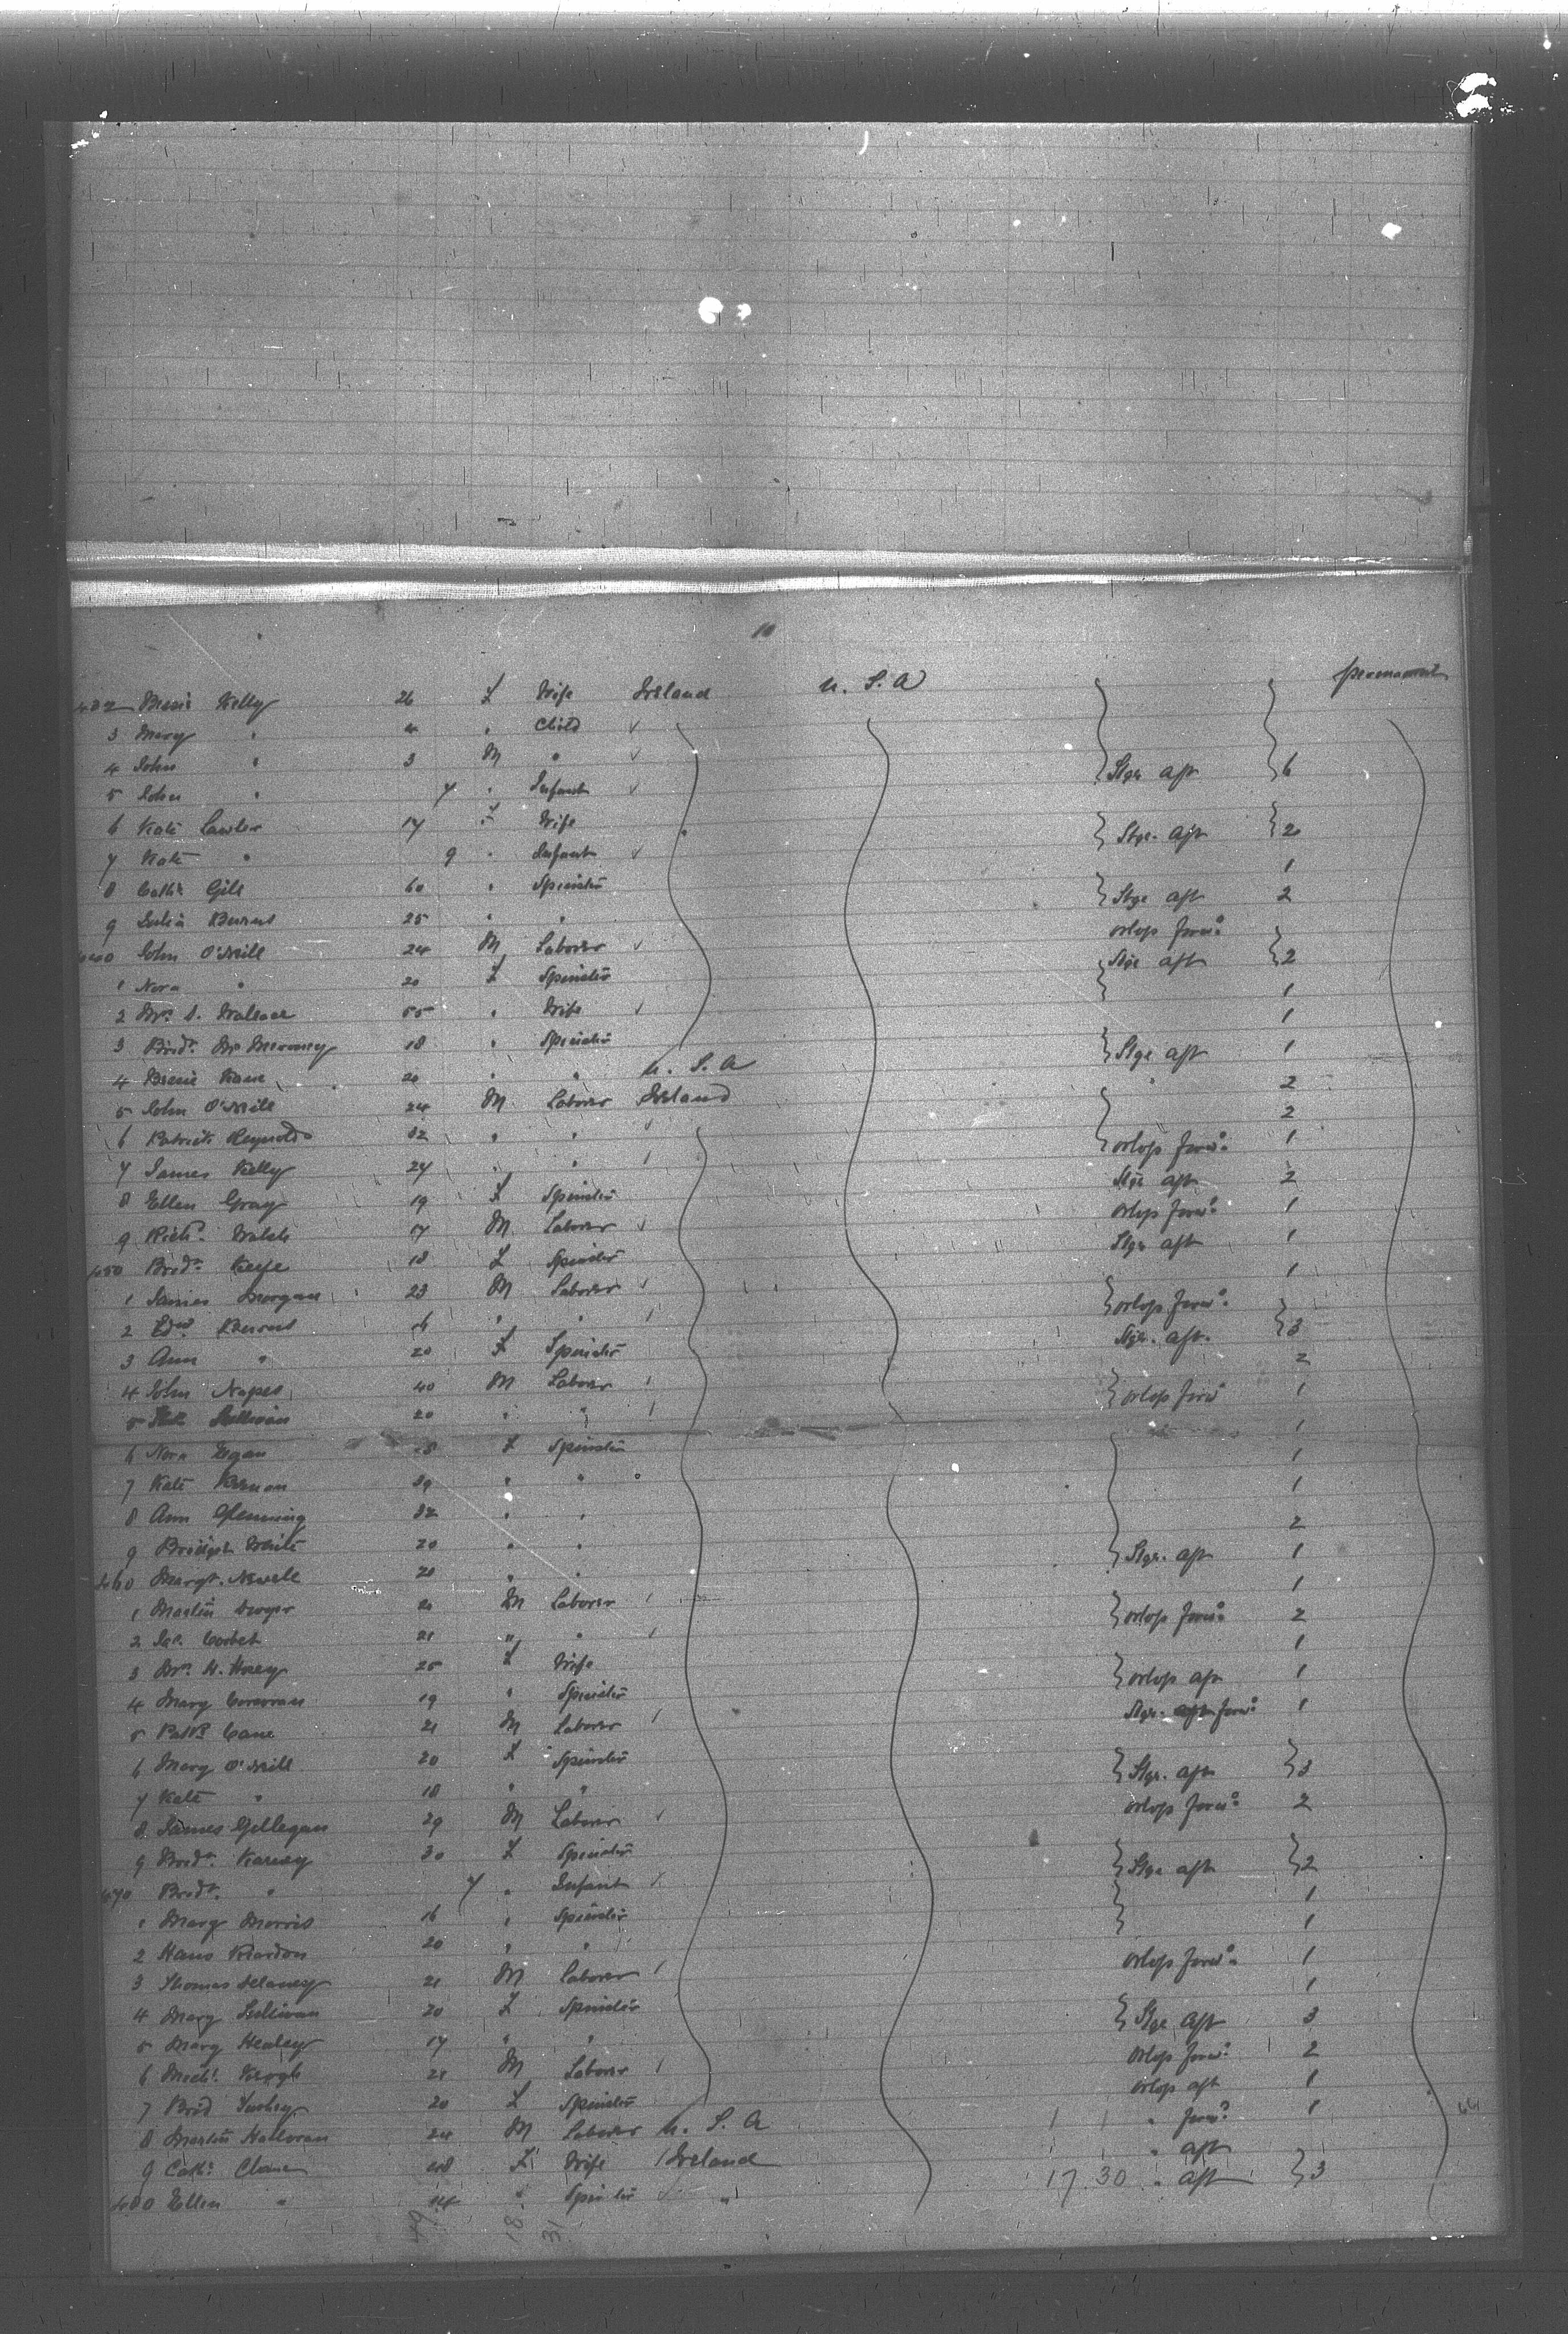 10
432 Kelly 26 F Wife Ireland U. S. A permanent
3 Mary " 4 " Child
4 John " 3 M "
5 John " 7 " Infant Stge aft 6
6 Kate Lawler 17 F Wife
7 Kate " 9 " Infant Stge. aft 2
8 Cath. Gill 60 " Spinster 1
9 Julia Burns 25 " " Stge aft 2
440 John O'Neill 24 M Laborer orlop forwd.
1 Nora " 20 F Spinster Stge aft 2
2 Mrs. Wallace 55 " Wife 1
3 Bridt. 18 " Spinster 1
4 Kane 20 " " U. S. A Stge aft 1
5 John O'Neill 24 M Laborer Ireland 2
6 Patrick Reynolds 32 " " 2
7 James Kelly 24 " " orlop forwd. 1
8 Ellen Gray 19 F Spinster Stge aft 2
9 Richd. Walsh 17 M Laborer orlop forwd. 1
450 Bridt. Keefe 18 F Spinster Stge aft 1
1 James Morgan 23 M Laborer 1
2 Edwd Burns 16 " " orlop forwd.
3 Ann " 20 F Spinster Stge. aft. 3
4 John 40 M Laborer 2
5 Sullivan 20 " " orlop forwd 1
6 Nora Egan 18 F Spinster 1
7 Kate 39 " " 1
8 Ann 32 " " 1
9 Bridget White 20 " " 2
460 Margt. Newell 20 " " Stge. aft 1
1 Martin Dwyer 20 M Laborer 1
2 Corbet 21 " " orlop forwd. 2
3 Mrs. H. 25 F Wife 1
4 Mary Corcoran 19 " Spinster orlop aft 1
5 Patk Cane 21 M Laborer Stge. forwd. 1
6 Mary O'Neill 20 F Spinster
7 Kate " 18 " " Stge. aft 3
8 James Gillegan 29 M Laborer orlop forwd. 2
9 Bridt. 30 F Spinster
470 Bridt. " 7 " Infant Stge aft 2
1 Mary Morris 16 " Spinster 1
2 Hans Riordon 20 " " 1
3 Thomas Delaney 21 M Laborer orlop forwd. 1
4 Mary Sullivan 20 F Spinster 1
5 Mary Healey 17 " " Stge aft 3
6 Michl. Keogh 21 M Laborer orlop forwd. 2
7 Brid 20 F Spinster orlop aft 1
8 Martin Halloran 24 M Laborer U. S. A " forwd. 1
9 Cath. 48 F Wife Ireland " aft
480 Ellen " 14 " Spinster " 17 30 " aft 3
49 18 31